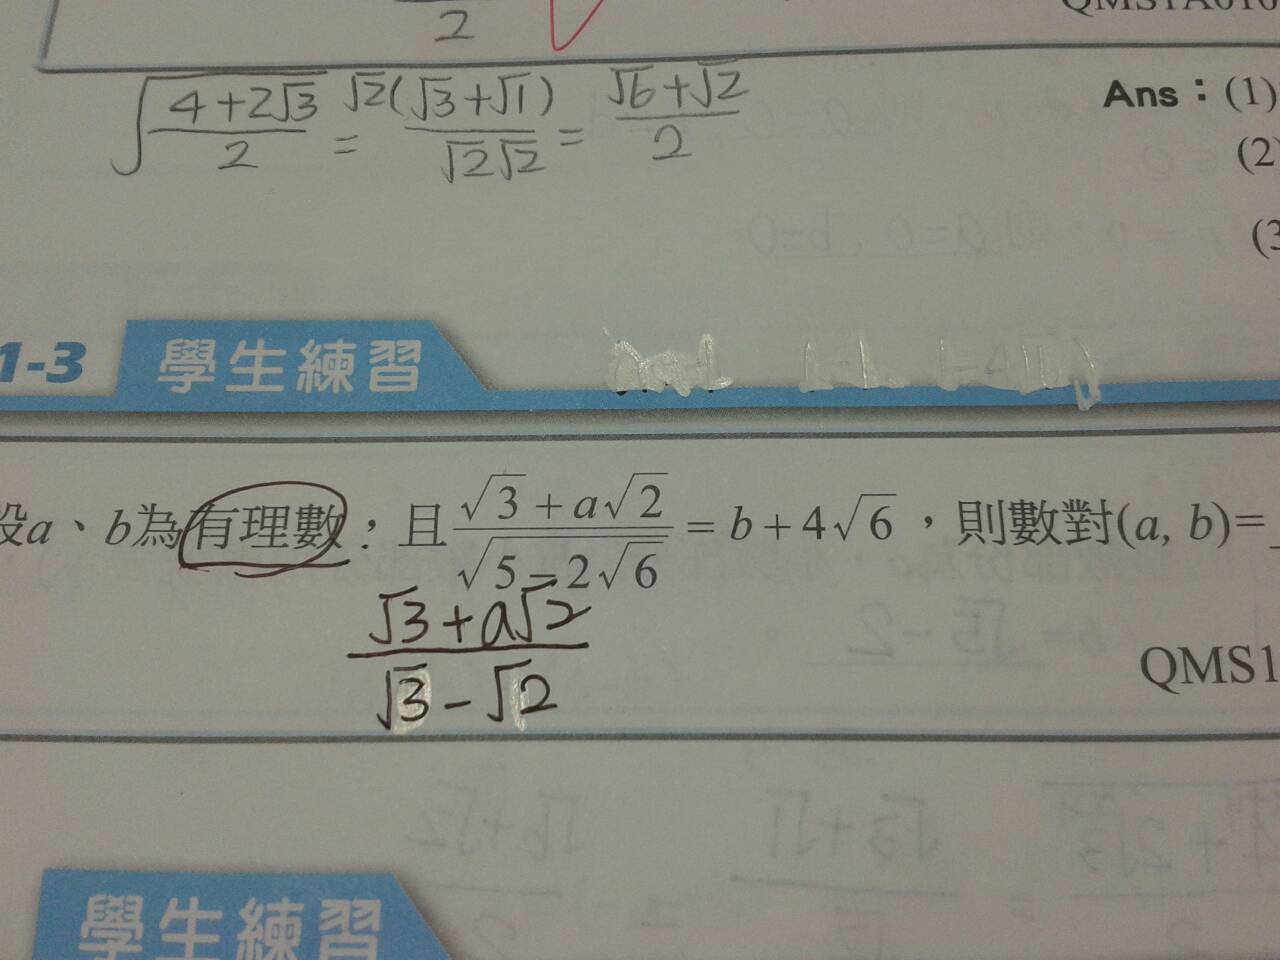 2
√(4+2√3)/2 = √2(√3+√1)/√2√2 = (√6+√2)/2
Ans：(1)
(2)
(3
1-3 學生練習
設a、b為有理數，且(√3+a√2)/√(5-2√6)=b+4√6，則數對(a, b)=
(√3+a√2)/(√3-√2)
QMS1
學生練習